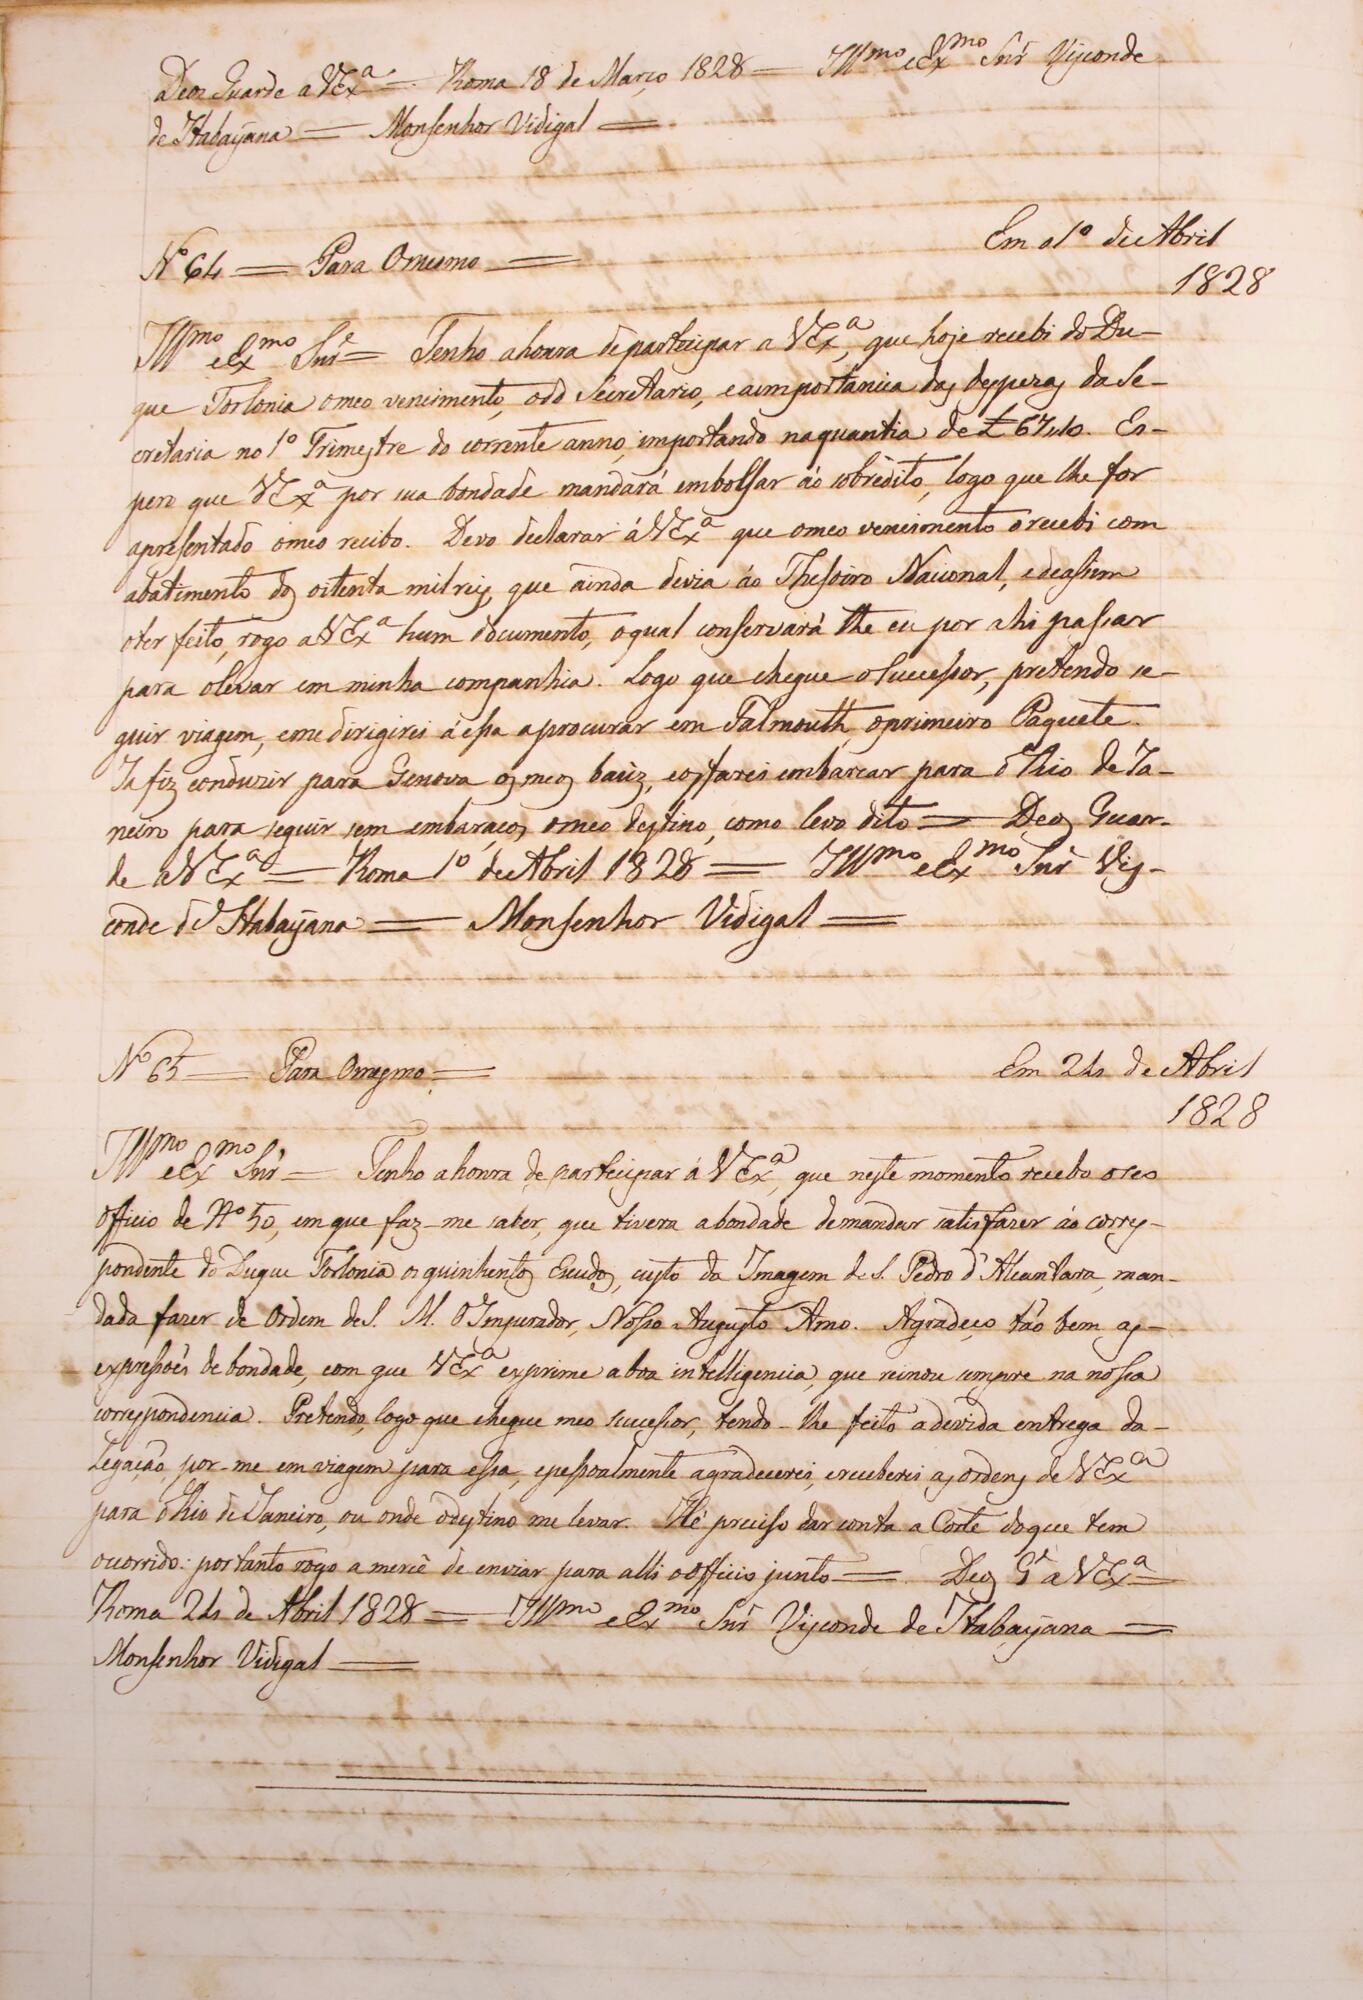 Deos Guarde a V Ex.ª = Roma 18 de Março 1828 = Ill.mo e Ex.mo Snr Visconde
de Itabayana = Monsenhor Vidigal =
Nº 64 = Para Omesmo =
Em o 1º de Abril
1828
Ill.mo e Ex.mo Snr = Tenho ahonra departecipar a V Ex.ª, que hoje recebi do Du-
que Torlonia omeo vencimento, odo Secretario, eaimportancia das despezas da Se-
cretaria no 1º Trimestre do corrente anno, importando naquantia de £ 67
pero que V Ex.ª por sua bondade mandará embolsar áo sobredito, logo que lhe for
apresentado omeo recibo. Devo declarar á V Ex.ª que omeo vencimento orecebi com
abatimento dos oitenta mil reis, que ainda devia áo Thesoiro Nacional, edeassim
oter feito, rogo a V Ex.ª hum documento, oqual conservará thé eu por ahi passar
para olevar em minha companhia. Logo que chegue oSuccessor, pretendo se-
guir viagem, eme dirigirei áessa aprocurar em Falmouth oprimeiro Paquete.
Ja fiz conduzir para Genova os meos baúz, eosfarei embarcar para o Rio de Ja-
neiro para seguir sem embaraços omeo destino, como levo dito = Deos Guar-
de a V Ex.ª = Roma 1º de Abril 1828 = Ill.mo e Ex.mo Snr Vis-
conde de Itabayana = Monsenhor Vidigal =
Nº 65 = Para Omesmo =
Em 24 de Abril
1828
Ill.mo e Ex.mo Snr = Tenho ahonra de partecipar á V Ex.ª, que neste momento recebo oseo
officio de Nº 50, emque faz-me saber, que tivera abondade demandar satisfazer áo corres-
pondente do Duque Torlonia os quinhentos Escudos, custo da Imagem de S. Pedro d'Alcantara, man-
dada fazer de Ordem de S. M. O Imperador, Nosso Augusto Amo. Agradeço táo bem as-
expressoẽs de bondade, com que V Ex.ª exprime aboa intelligencia, que reinou sempre na nossa
correspondencia. Pretendo, logo que chegue meo successor, tendo-lhe feito adevida entrega da-
Legação, por-me emviagem para essa, epessoalmente agradecerei, ereceberei as ordens de V Ex.ª
para o Rio de Janeiro, ou onde odestino me levar. Hé preciso dar conta a Corte doque tem
occorrido: portanto rogo a mercê de enviar para alli oOfficio junto = Deos G.e a V Ex.ª =
Roma 24 de Abril 1828 = Ill.mo e Ex.mo Snr Visconde de Itabayana =
Monsenhor Vidigal =